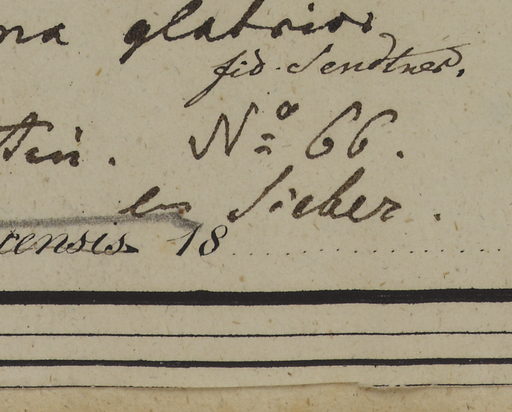 na glabrior
fid. Sendtner.
Nº 66.
Sieber.
censis 18